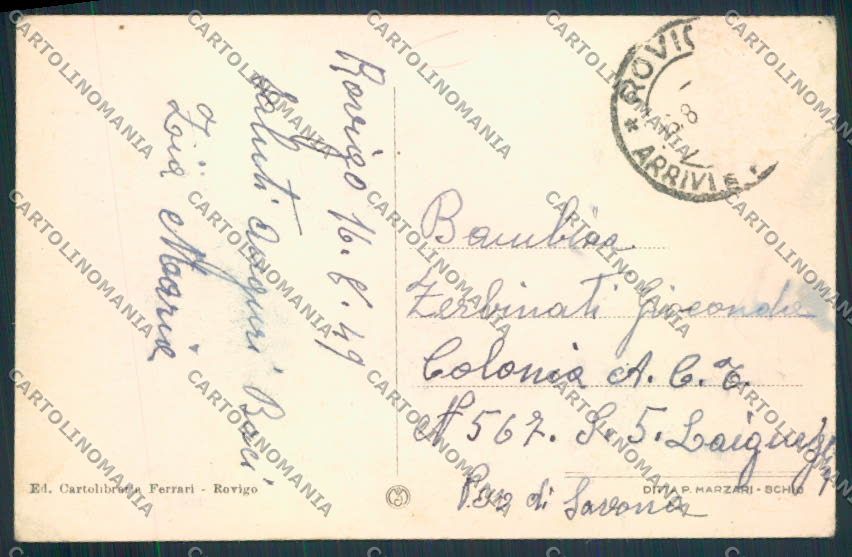 Rovigo 16.8.49
Saluti Auguri Baci
Zia Maria
ROVIG
8
* ARRIVI E
Bambina
Zerbinati Gioconda
Colonia A. C. T.
N 567. G. 5. Laigueglia
Pro di Savona
Ed. Cartolibreria Ferrari - Rovigo
DITTA P. MARZARI - SCHIO
CARTOLINOMANIA